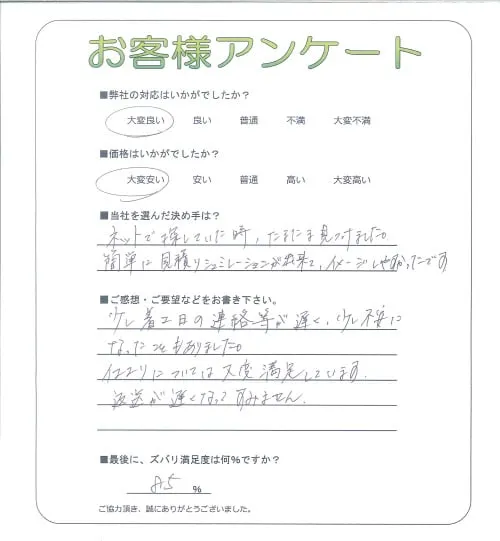 お客様アンケート
■弊社の対応はいかがでしたか？
大変良い 良い 普通 不満 大変不満
■価格はいかがでしたか？
大変安い 安い 普通 高い 大変高い
■当社を選んだ決め手は？
ネットで探していた時、たまたま見つけました。
簡単に見積りシュミレーションが出来て、イメージしやすかったです
■ご感想・ご要望などをお書き下さい。
少し着工日の連絡等が遅く、少し不安に
なったこともありました。
については大変満足しています。
返送が遅くなってすみません。
■最後に、ズバリ満足度は何％ですか？
85 %
ご協力頂き、誠にありがとうございました。